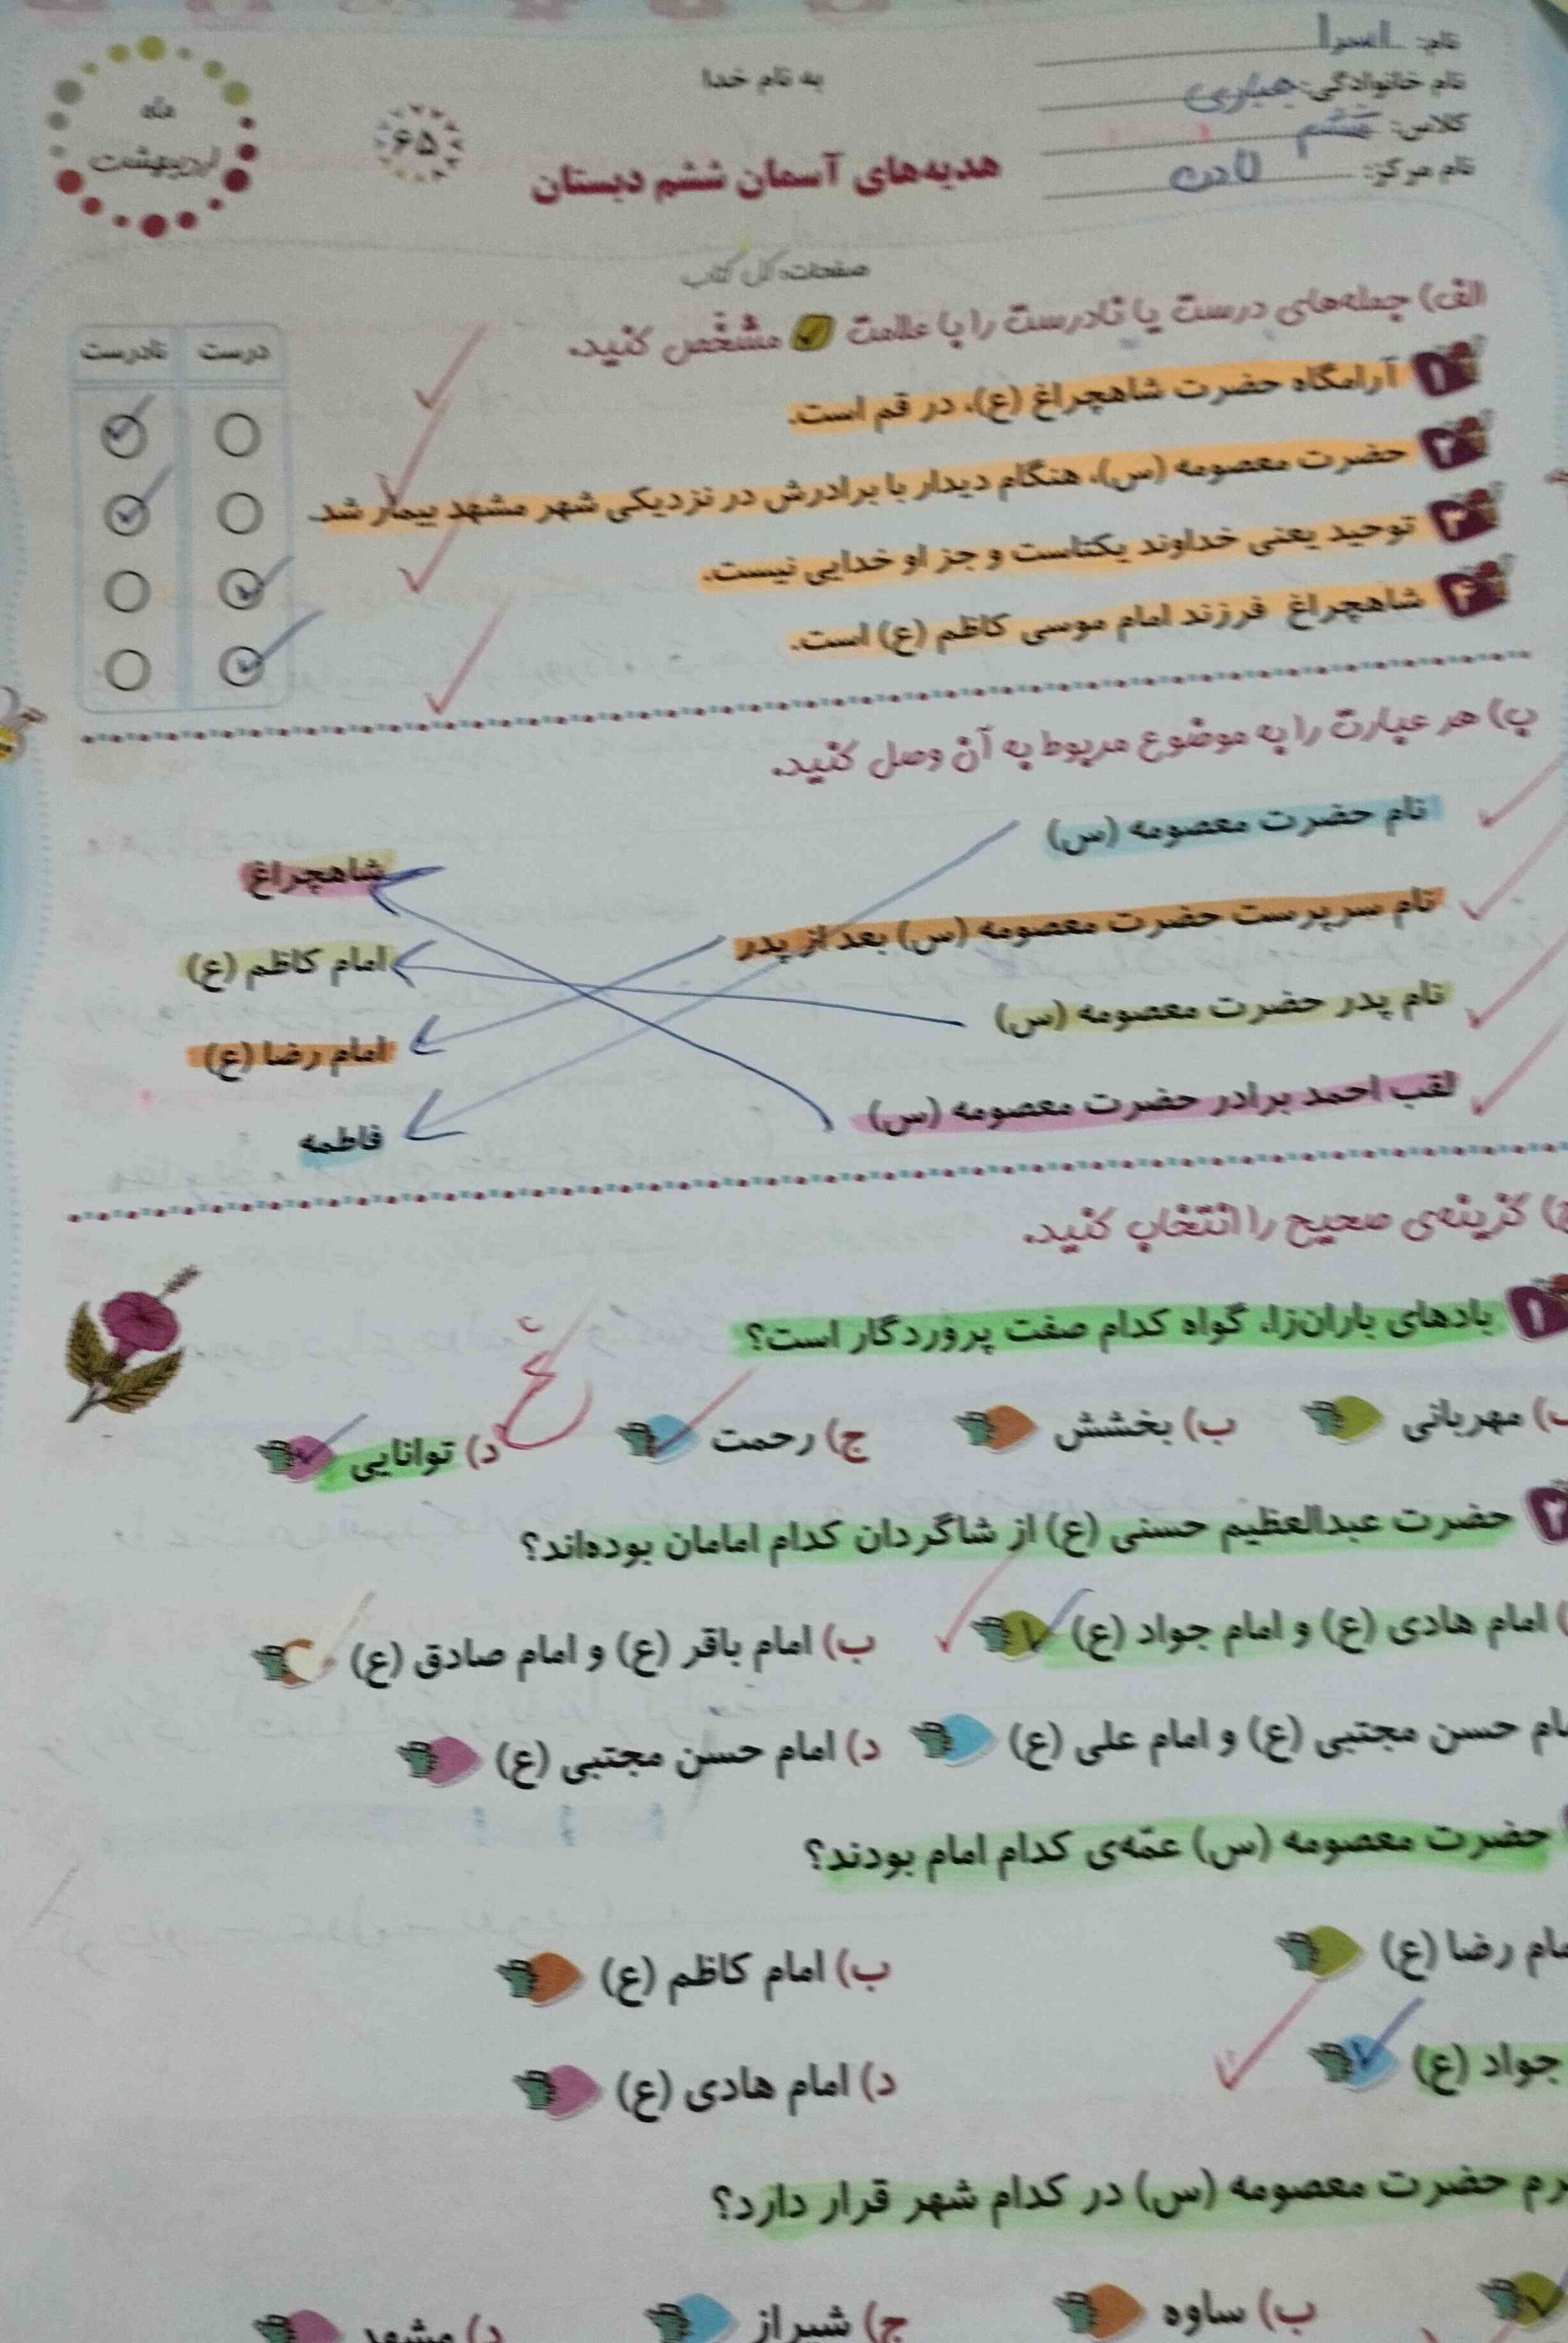 نام: اسرا
نام خانوادگی: جباری
کلاس: ششم
نام مرکز:
به نام خدا
هدیه‌های آسمان ششم دبستان
۶۵
ماه
اردیبهشت
صفحات: کل کتاب
الف) جمله‌های درست یا نادرست را با علامت ✓ مشخّص کنید.
درست نادرست
۱ آرامگاه حضرت شاهچراغ (ع)، در قم است.
۲ حضرت معصومه (س)، هنگام دیدار با برادرش در نزدیکی شهر مشهد بیمار شد.
۳ توحید یعنی خداوند یکتاست و جز او خدایی نیست.
۴ شاهچراغ فرزند امام موسی کاظم (ع) است.
ب) هر عبارت را به موضوع مربوط به آن وصل کنید.
نام حضرت معصومه (س)
شاهچراغ
نام سرپرست حضرت معصومه (س) بعد از پدر
امام کاظم (ع)
نام پدر حضرت معصومه (س)
امام رضا (ع)
لقب احمد برادر حضرت معصومه (س)
فاطمه
) گزینه‌ی صحیح را انتخاب کنید.
۱ بادهای باران‌زا، گواه کدام صفت پروردگار است؟
) مهربانی ب) بخشش ج) رحمت د) توانایی
۲ حضرت عبدالعظیم حسنی (ع) از شاگردان کدام امامان بوده‌اند؟
) امام هادی (ع) و امام جواد (ع) ب) امام باقر (ع) و امام صادق (ع)
مام حسن مجتبی (ع) و امام علی (ع) د) امام حسن مجتبی (ع)
حضرت معصومه (س) عمّه‌ی کدام امام بودند؟
مام رضا (ع) ب) امام کاظم (ع)
جواد (ع) د) امام هادی (ع)
رم حضرت معصومه (س) در کدام شهر قرار دارد؟
ب) ساوه ج) شیراز د) مشهد